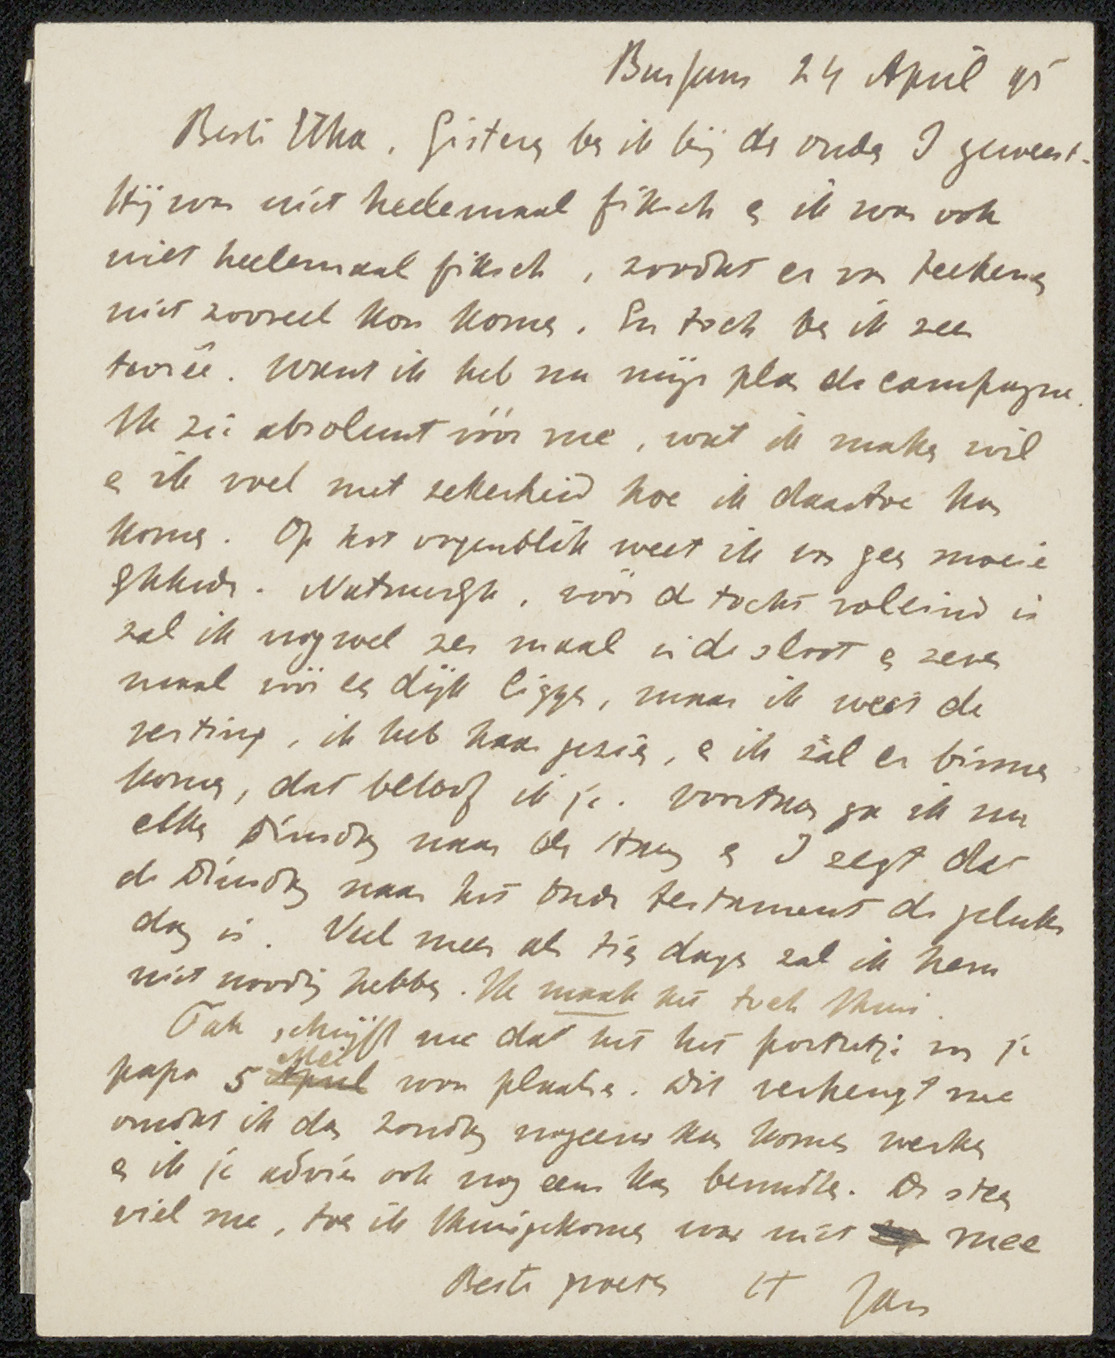 Bussum 24 April 95
Beste Utha, Gisteren ben ik bij de oude I geweest.
Hij was niet heelemaal fiksch en ik was ook
niet heelemaal fiksch, zoodat er van teekenen
niet zooveel kon komen. En toch ben ik zeer
tevree. Want ik heb nu mijn plan de campagne.
Ik zie absoluut vóór me, wat ik maken wil
en ik voel met zekerheid hoe ik daartoe kan
komen. Op het oogenblik weet ik van geen moeie
lijkheden. Natuurlijk, vóór de tocht voleind is
zal ik nog wel zes maal in de sloot en zeven
maal vóór een dijk liggen, maar ik weet de
vesting, ik heb haar gezien, en ik zàl er binnen
komen, dat beloof ik je. Voortaan ga ik nu
elken Dinsdag naar den Haag en I zegt dat
de Dinsdag naar het Oude testament de geluks
dag is. Veel meer als tien dagen zal ik hem
niet noodig hebben. Ik maak het toch thuis.
Tak schrijft me dat hij het portretje van je
papa 5 April Mei wou plaatsen. Dit verheugt me
omdat ik dan Zondag nog eens kan komen werken
en ik je advies ook nog eens kan benutten. De steen
viel me, toen ik thuisgekomen was niet mee
Beste groeten tt Jan